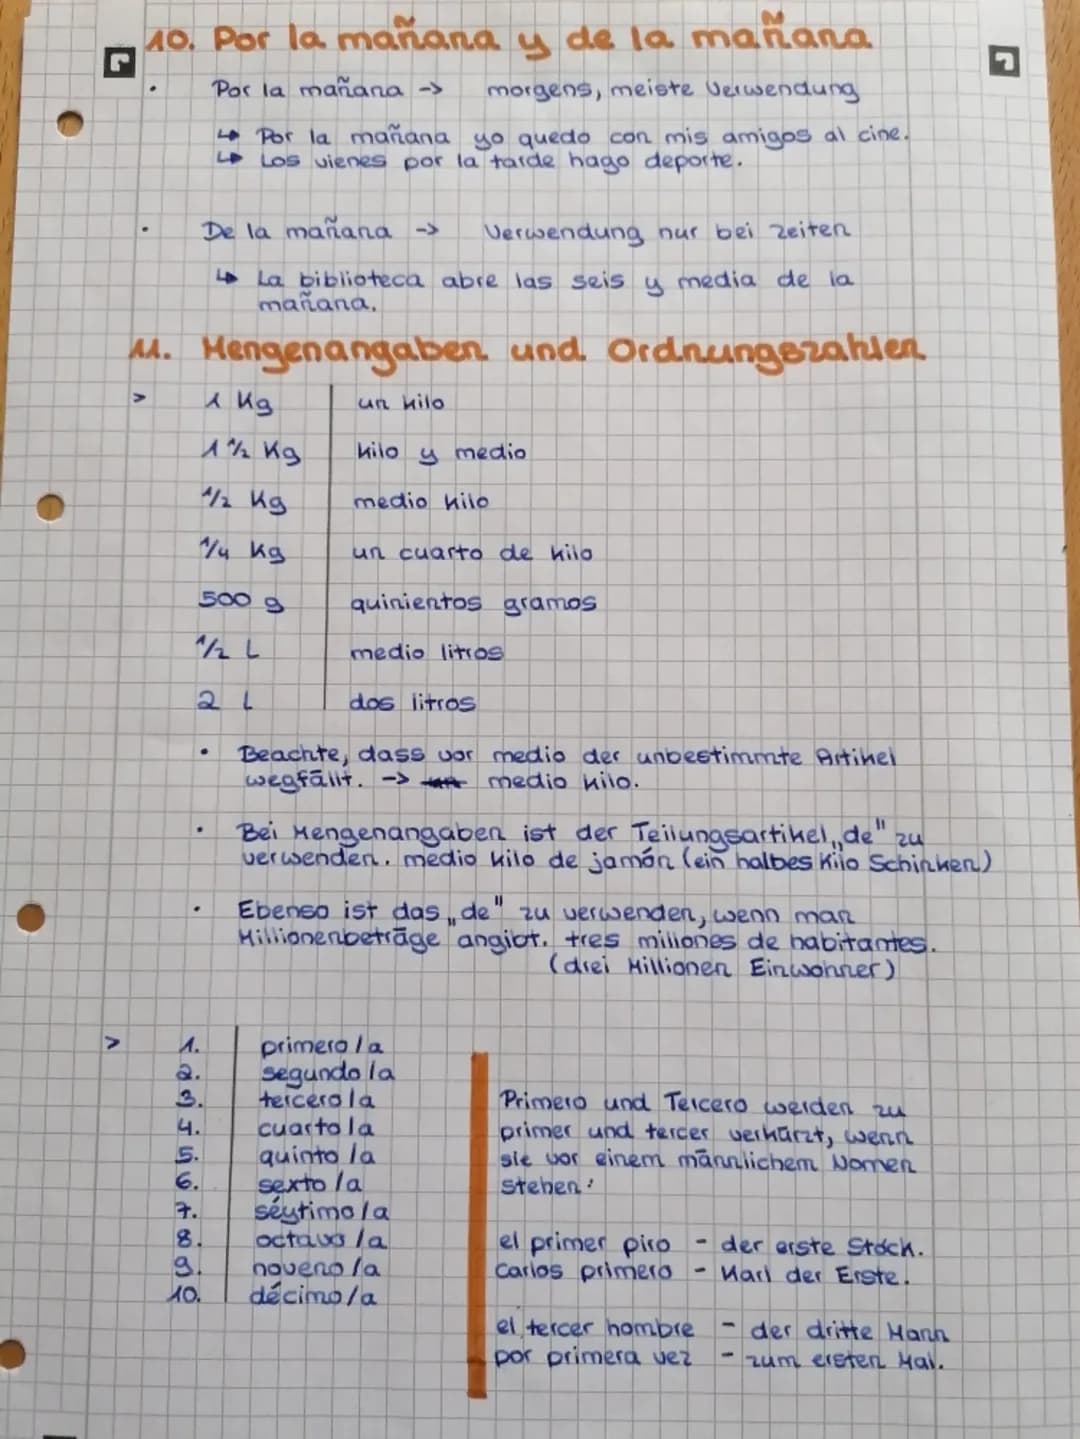 10. Por la mañana y de la mañana
• Por la mañana -> morgens, meiste Verwendung
↳ Por la mañana yo quedo con mis amigos al cine.
↳ Los vienes por la tarde hago deporte.
• De la mañana -> Verwendung nur bei Zeiten
↳ La biblioteca abre las seis y media de la
mañana.
11. Mengenangaben und Ordnungszahlen
> 1 Kg un kilo
1 1/2 Kg kilo y medio
1/2 Kg medio kilo
1/4 Kg un cuarto de kilo
500 g quinientos gramos
1/2 L medio litros
2 L dos litros
• Beachte, dass vor medio der unbestimmte Artikel
wegfällt. -> un medio kilo.
• Bei Mengenangaben ist der Teilungsartikel „de" zu
verwenden. medio kilo de jamón (ein halbes Kilo Schinken)
• Ebenso ist das „de" zu verwenden, wenn man
Millionenbeträge angibt. tres millones de habitantes.
(drei Millionen Einwohner)
> 1. primero/a
2. segundo/a
3. tercero/a
4. cuarto/a
5. quinto/a
6. sexto/a
7. séytimo/a
8. octavo/a
9. noveno/a
10. décimo/a
Primero und Tercero werden zu
primer und tercer verkürzt, wenn
sie vor einem männlichem Nomen
stehen:
el primer piro - der erste Stock.
Carlos primero - Karl der Erste.
el tercer hombre - der dritte Mann
por primera vez - zum ersten Mal.